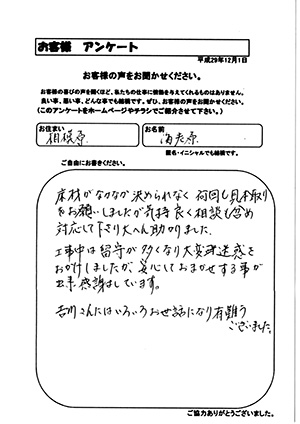 お客様 アンケート
平成29年12月1日
お客様の声をお聞かせください。
お客様の喜びの声を聞くほど、私たちの仕事に労働を与えてくれるものはありません。
良い事、悪い事、どんな事でも結構です。ぜひ、お客様の声をお聞かせください。
(このアンケートをホームページやチラシでご紹介させて下さい。)
お住まい
相模原
お名前
海老原
匿名・イニシャルでも結構です。
ご自由にお書きください。
床材がなかなか決められなく 何回も見本取り
をお願いしましたが気持良く相談も含め
対応して下さり大へん助かりました。
工事中は留守が多くなり大変御迷惑を
おかけしましたが、安心しておまかせする事が
出来感謝しています。
吉川さんにはいろいろお世話になり有難う
ございました。
ご協力ありがとうございました。